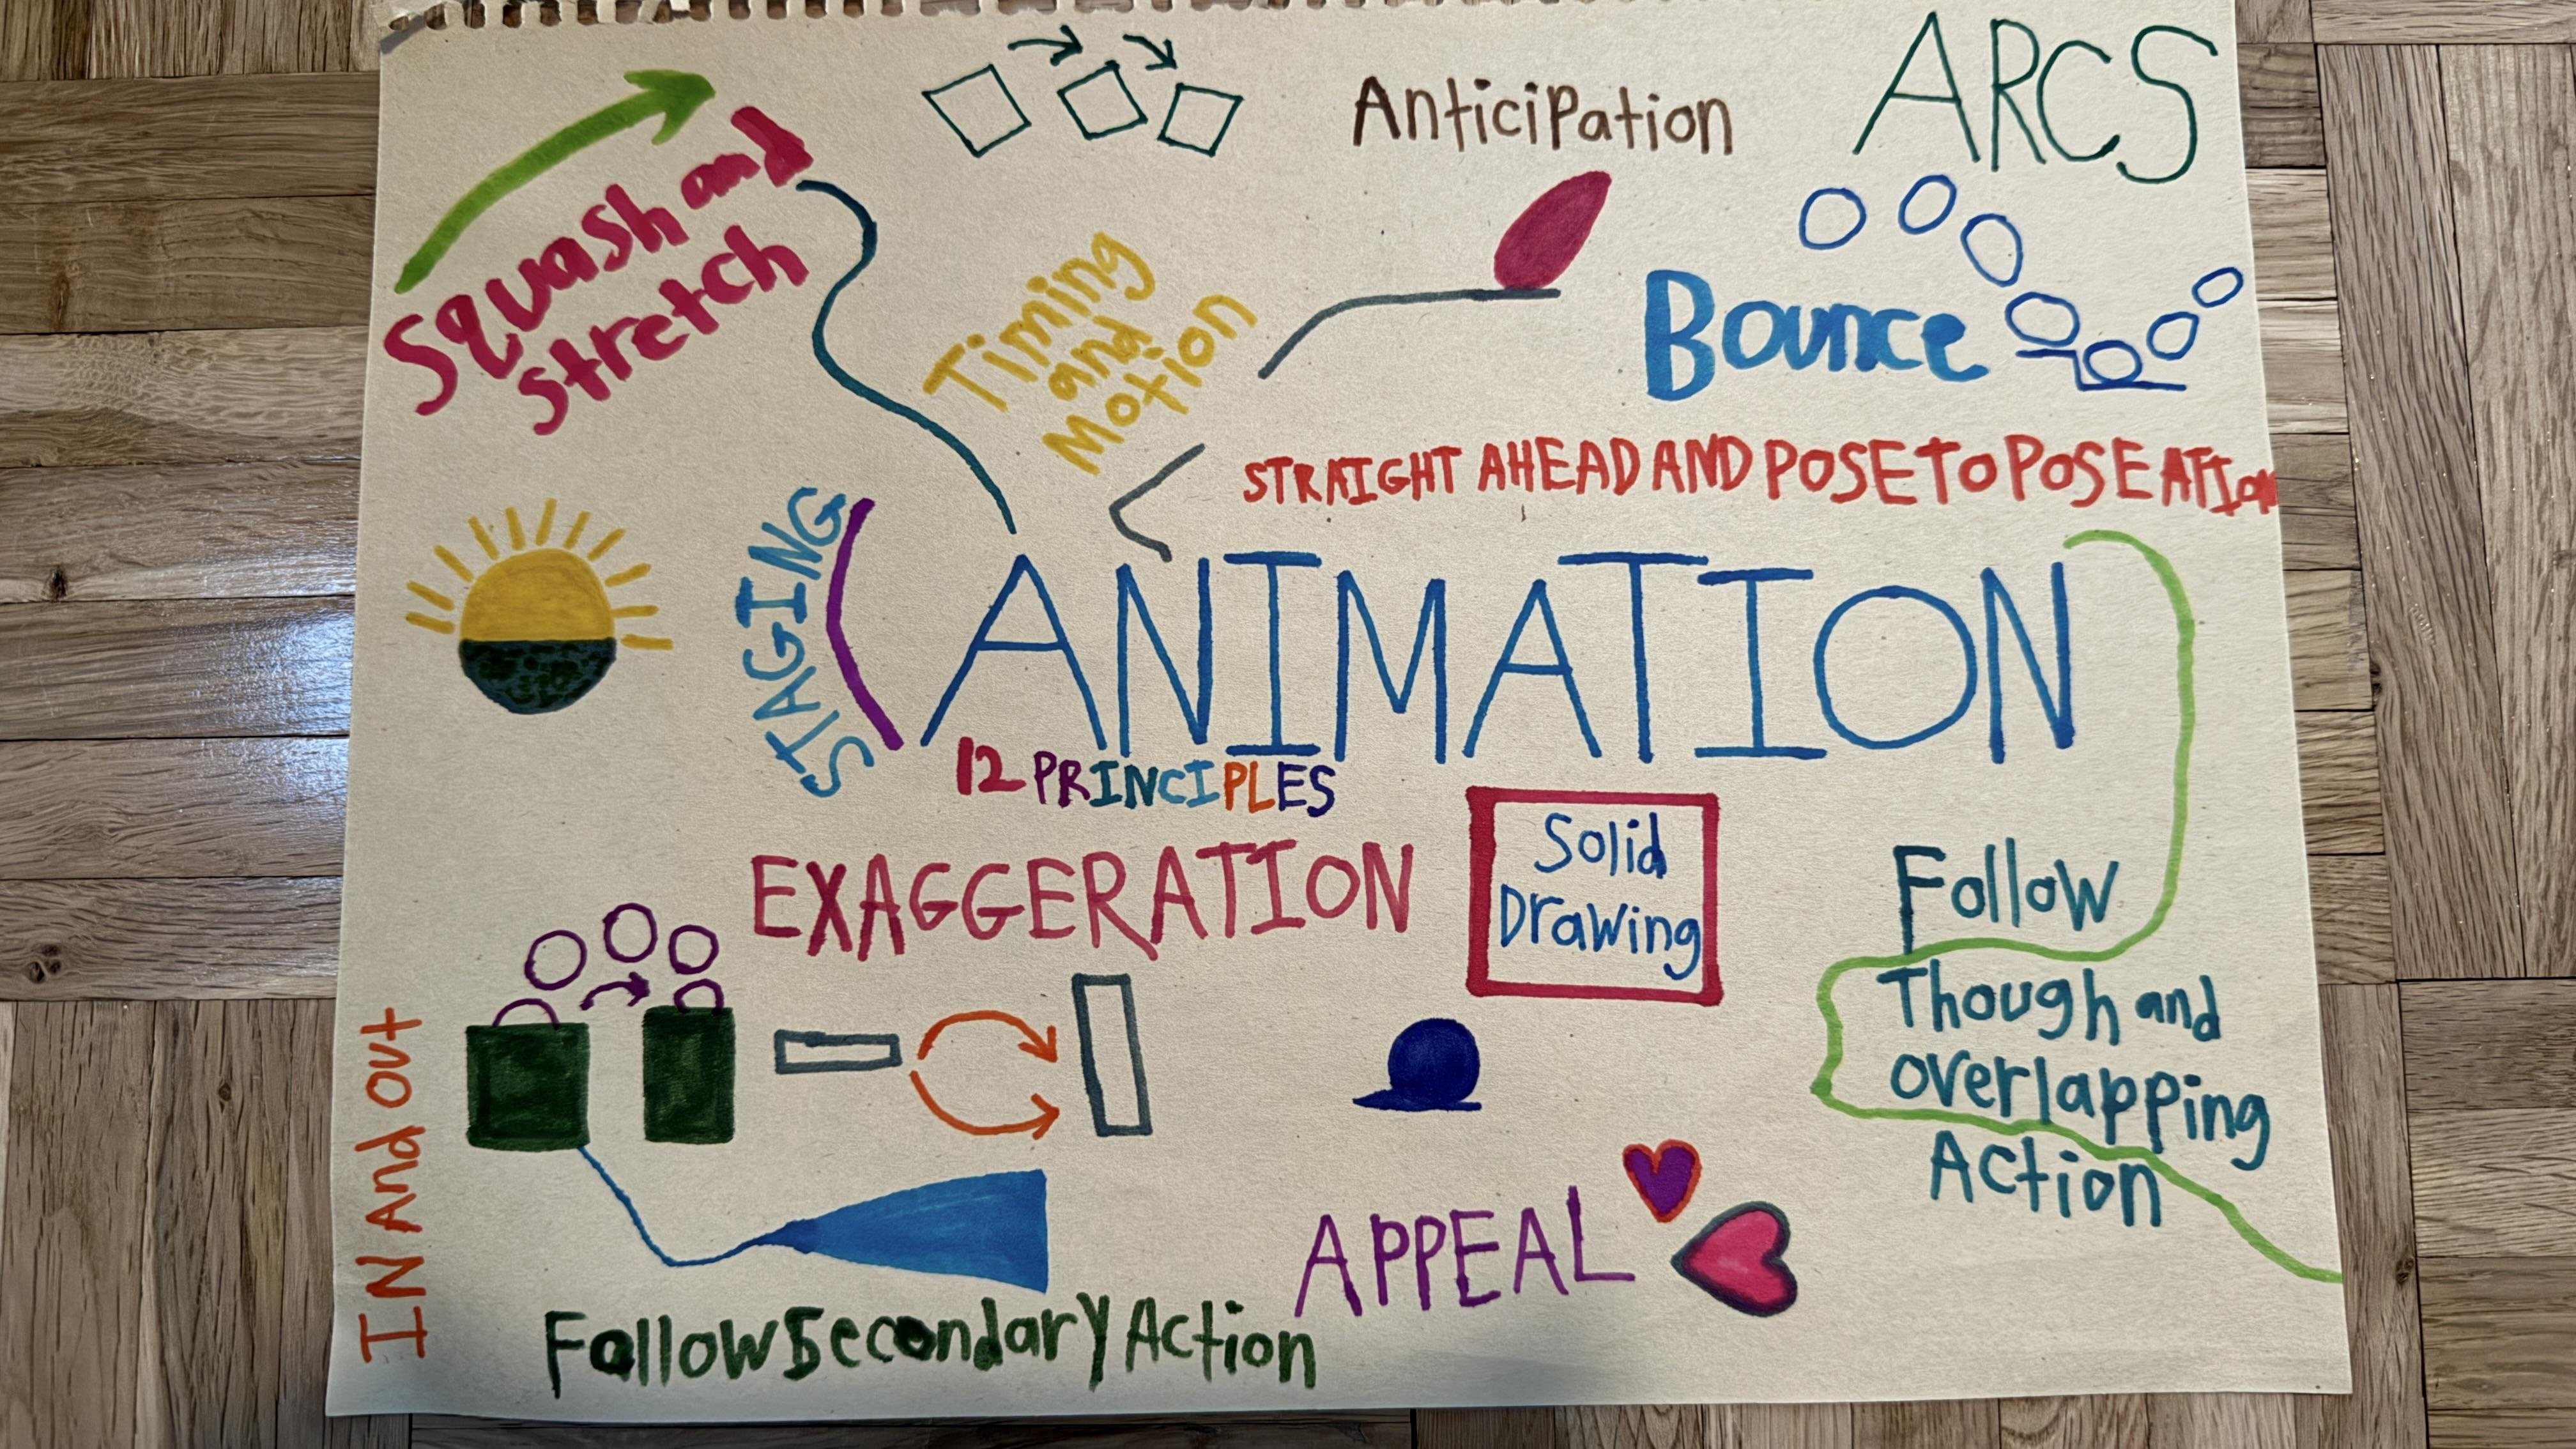 ARCS
Anticipation
Squash and
Stretch
Timing
and
Motion
Bounce
STRAIGHT AHEAD AND POSE TO POSE ATION
STAGING
ANIMATION
12 PRINCIPLES
EXAGGERATION
Solid
Drawing
Follow
Though and
overlapping
Action
IN And out
APPEAL
Follow Secondary Action